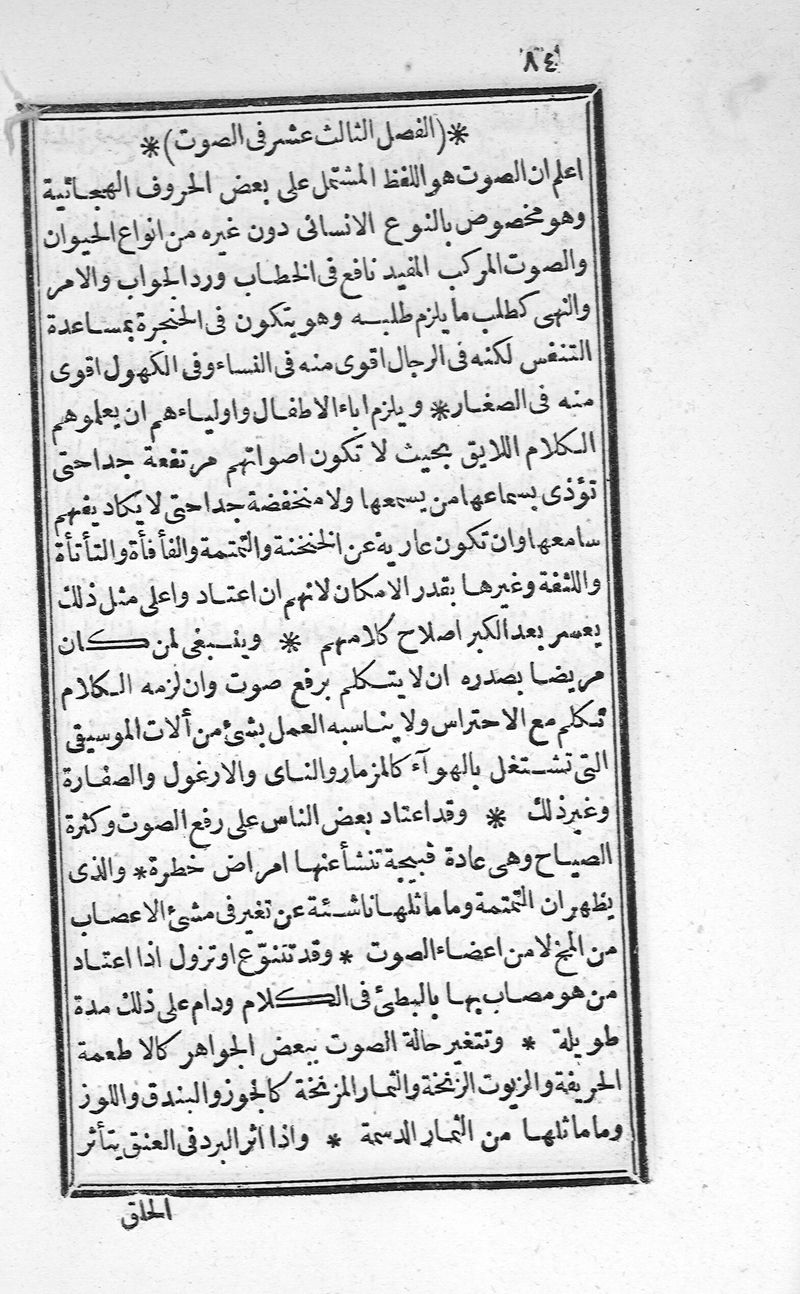 ٨٤
*(الفصل الثالث عشر فى الصوت)*
اعلم ان الصوت هو اللفظ المشتمل على بعض الحروف الهجائية
وهو مخصوص بالنوع الانسانى دون غيره من انواع الحيوان
والصوت المركب المفيد نافع فى الخطاب ورد الجواب والامر
والنهى كطلب ما يلزم طلبه وهو يتكون فى الحنجرة بمساعدة
التنفس لكنه فى الرجال اقوى منه فى النساء وفى الكهول اقوى
منه فى الصغار * ويلزم اباء الاطفال واولياءهم ان يعلموهم
الكلام اللايق بحيث لا تكون اصواتهم مرتفعة جدا حتى
تؤذى بسماعها من يسمعها ولا منخفضة جدا حتى لا يكاد يفهم
سامعها وان تكون عارية عن الخنخنة والتمتمة والفأفأة والتأتأة
واللثغة وغيرها بقدر الامكان لانهم ان اعتاد واعلى مثل ذلك
يعسر بعد الكبر اصلاح كلامهم * وينبغى لمن كان
مريضا بصدره ان لا يتكلم برفع صوت وان لزمه الكلام
تكلم مع الاحتراس ولا يناسبه العمل بشئ من ألات الموسيقى
التى تشتغل بالهوآء كالمزمار والناى والارغول والصفارة
وغير ذلك * وقد اعتاد بعض الناس على رفع الصوت وكثرة
الصياح وهى عادة قبيحة تنشأ عنها امراض خطرة * والذى
يظهر ان التمتمة وما ماثلها ناشئة عن تغير فى مشئ الاعصاب
من المخ لا من اعضاء الصوت * وقد تتنوّع او تزول اذا اعتاد
من هو مصاب بها بالبطئ فى الكلام ودام على ذلك مدة
طويلة * وتتغير حالة الصوت ببعض الجواهر كالاطعمة
الحريفة والزيوت الزنخة والثمار المزنخة كالجوز والبندق واللوز
وما ماثلها من الثمار الدسمة * واذا اثر البرد فى العنق يتأثر
الحلق